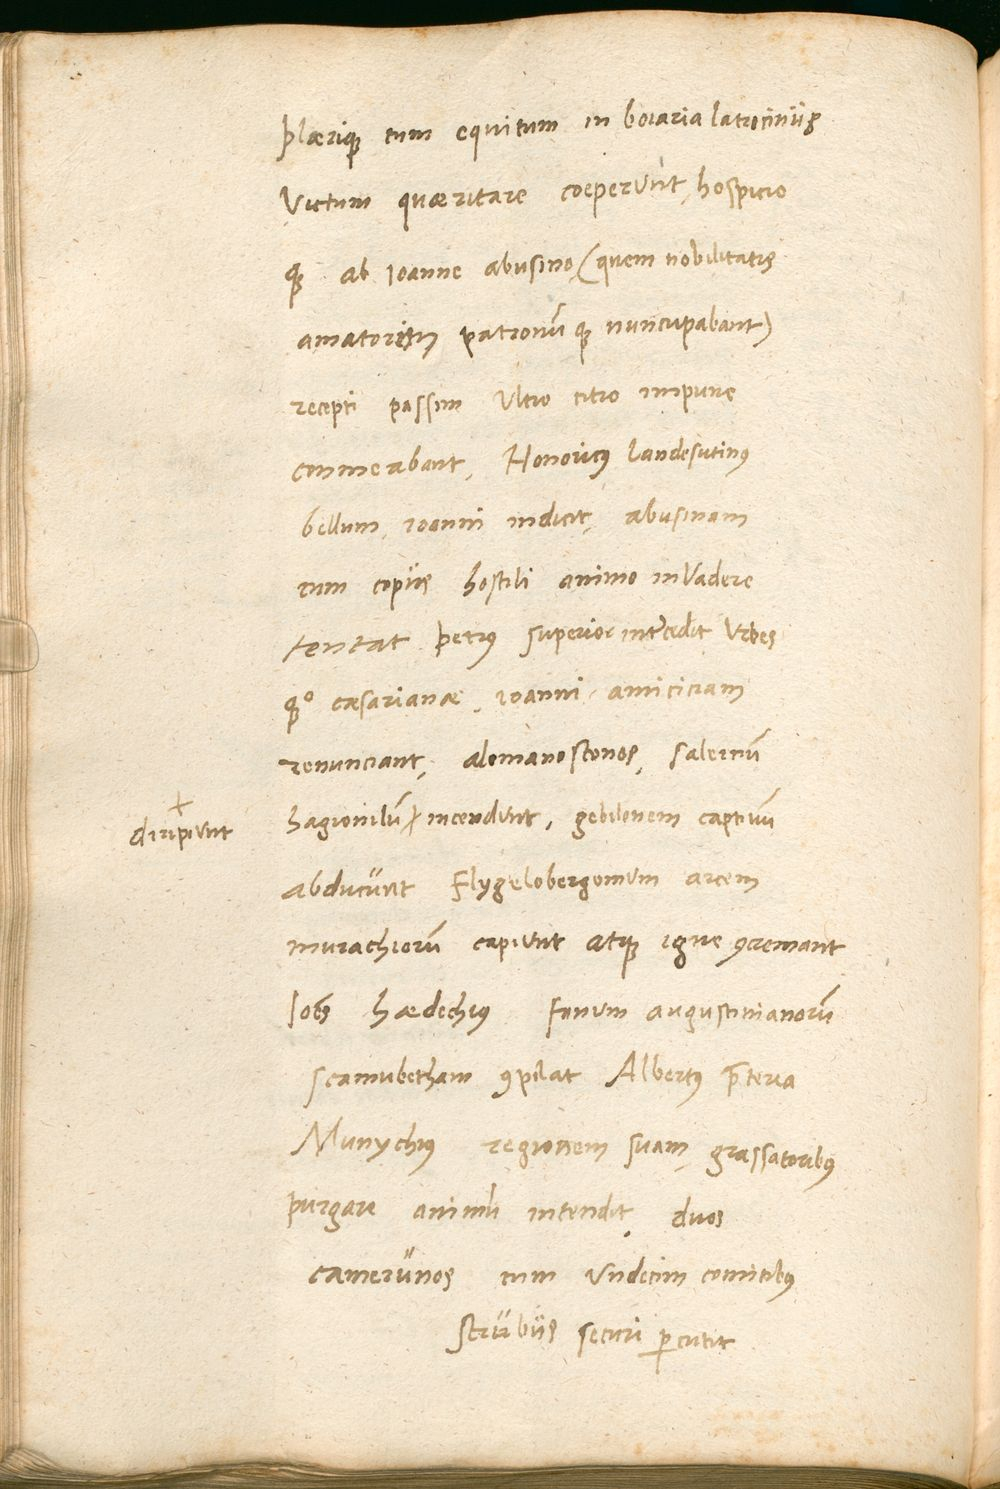 plærique tum equitum in boiaria latrociniis
Victum quæritare coeperunt, hospicio
que ab Ioanne abusino, (quem nobilitatis
amatorem patronū que nuncupabant)
recepti passim Ultro citro impune
commeabant, Honoricus landesutinus
bellum, ioanni indicit, abusinam
cum copiis hostili animo inVadere
tentat petrus superior intercedit Urbes
que cæsarianæ, ioanni amiciciam
renunciant, alomanostonos, salernū
diripiunt
hagionilū incendunt, gebilonem captiuū
abducünt Flygelobergomum arcem
murachiorū capiunt atque igne 9cremant
Iobs hædechius Fanum augustinianorū
scamubetham 9pilat Albertus p̄terea
Munychius regionem suam, grassatoribus
purgare animū intendit, duos
camerünos cum Undecim comitibus
strübiis securi percutit